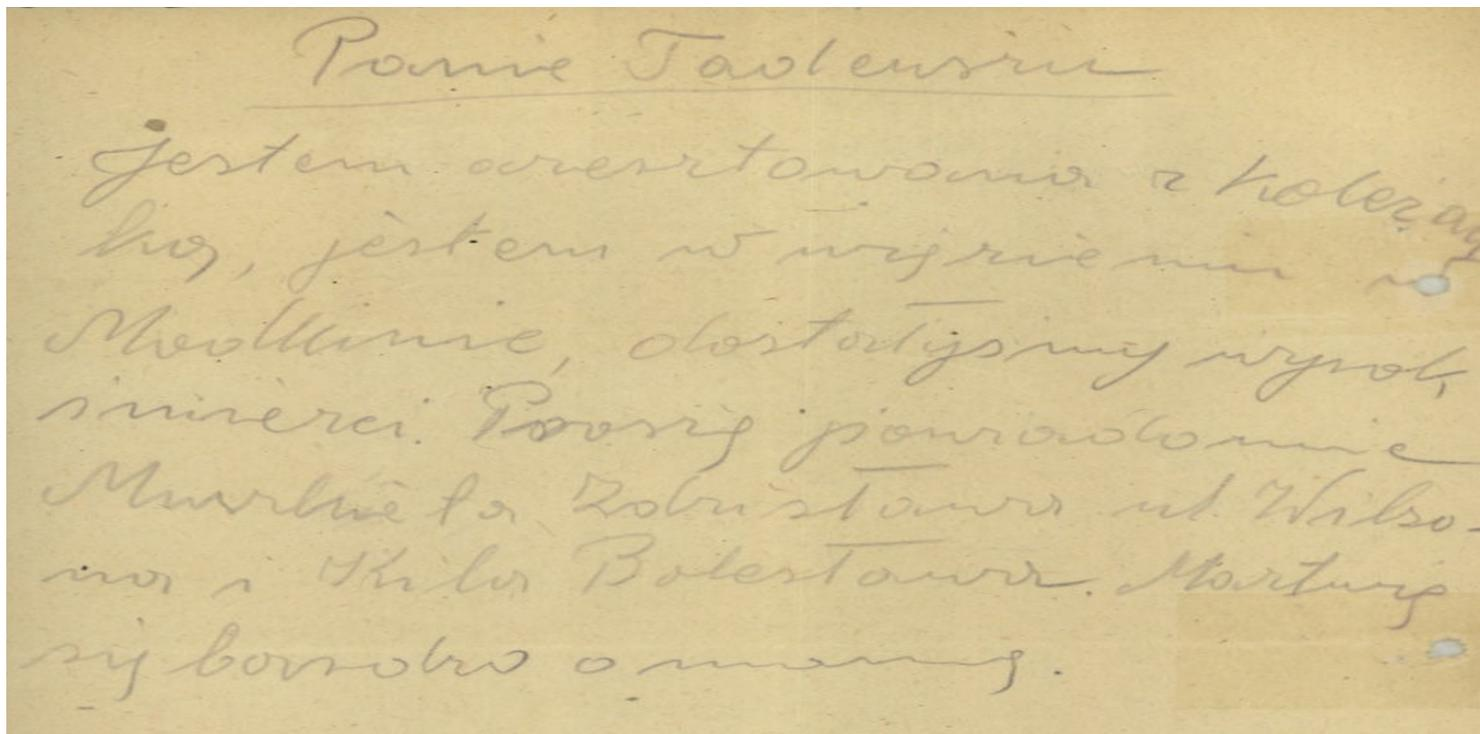 Panie Tadeuszu
jestem aresztowana z koleżan
ką, jestem w więzieniu w
Modlinie, dostałyśmy wyrok
śmierci. Proszę powiadomić
Zdzisława ul. Wilso-
na i Kila Bolesława. Martwię
się bardzo o mamę.